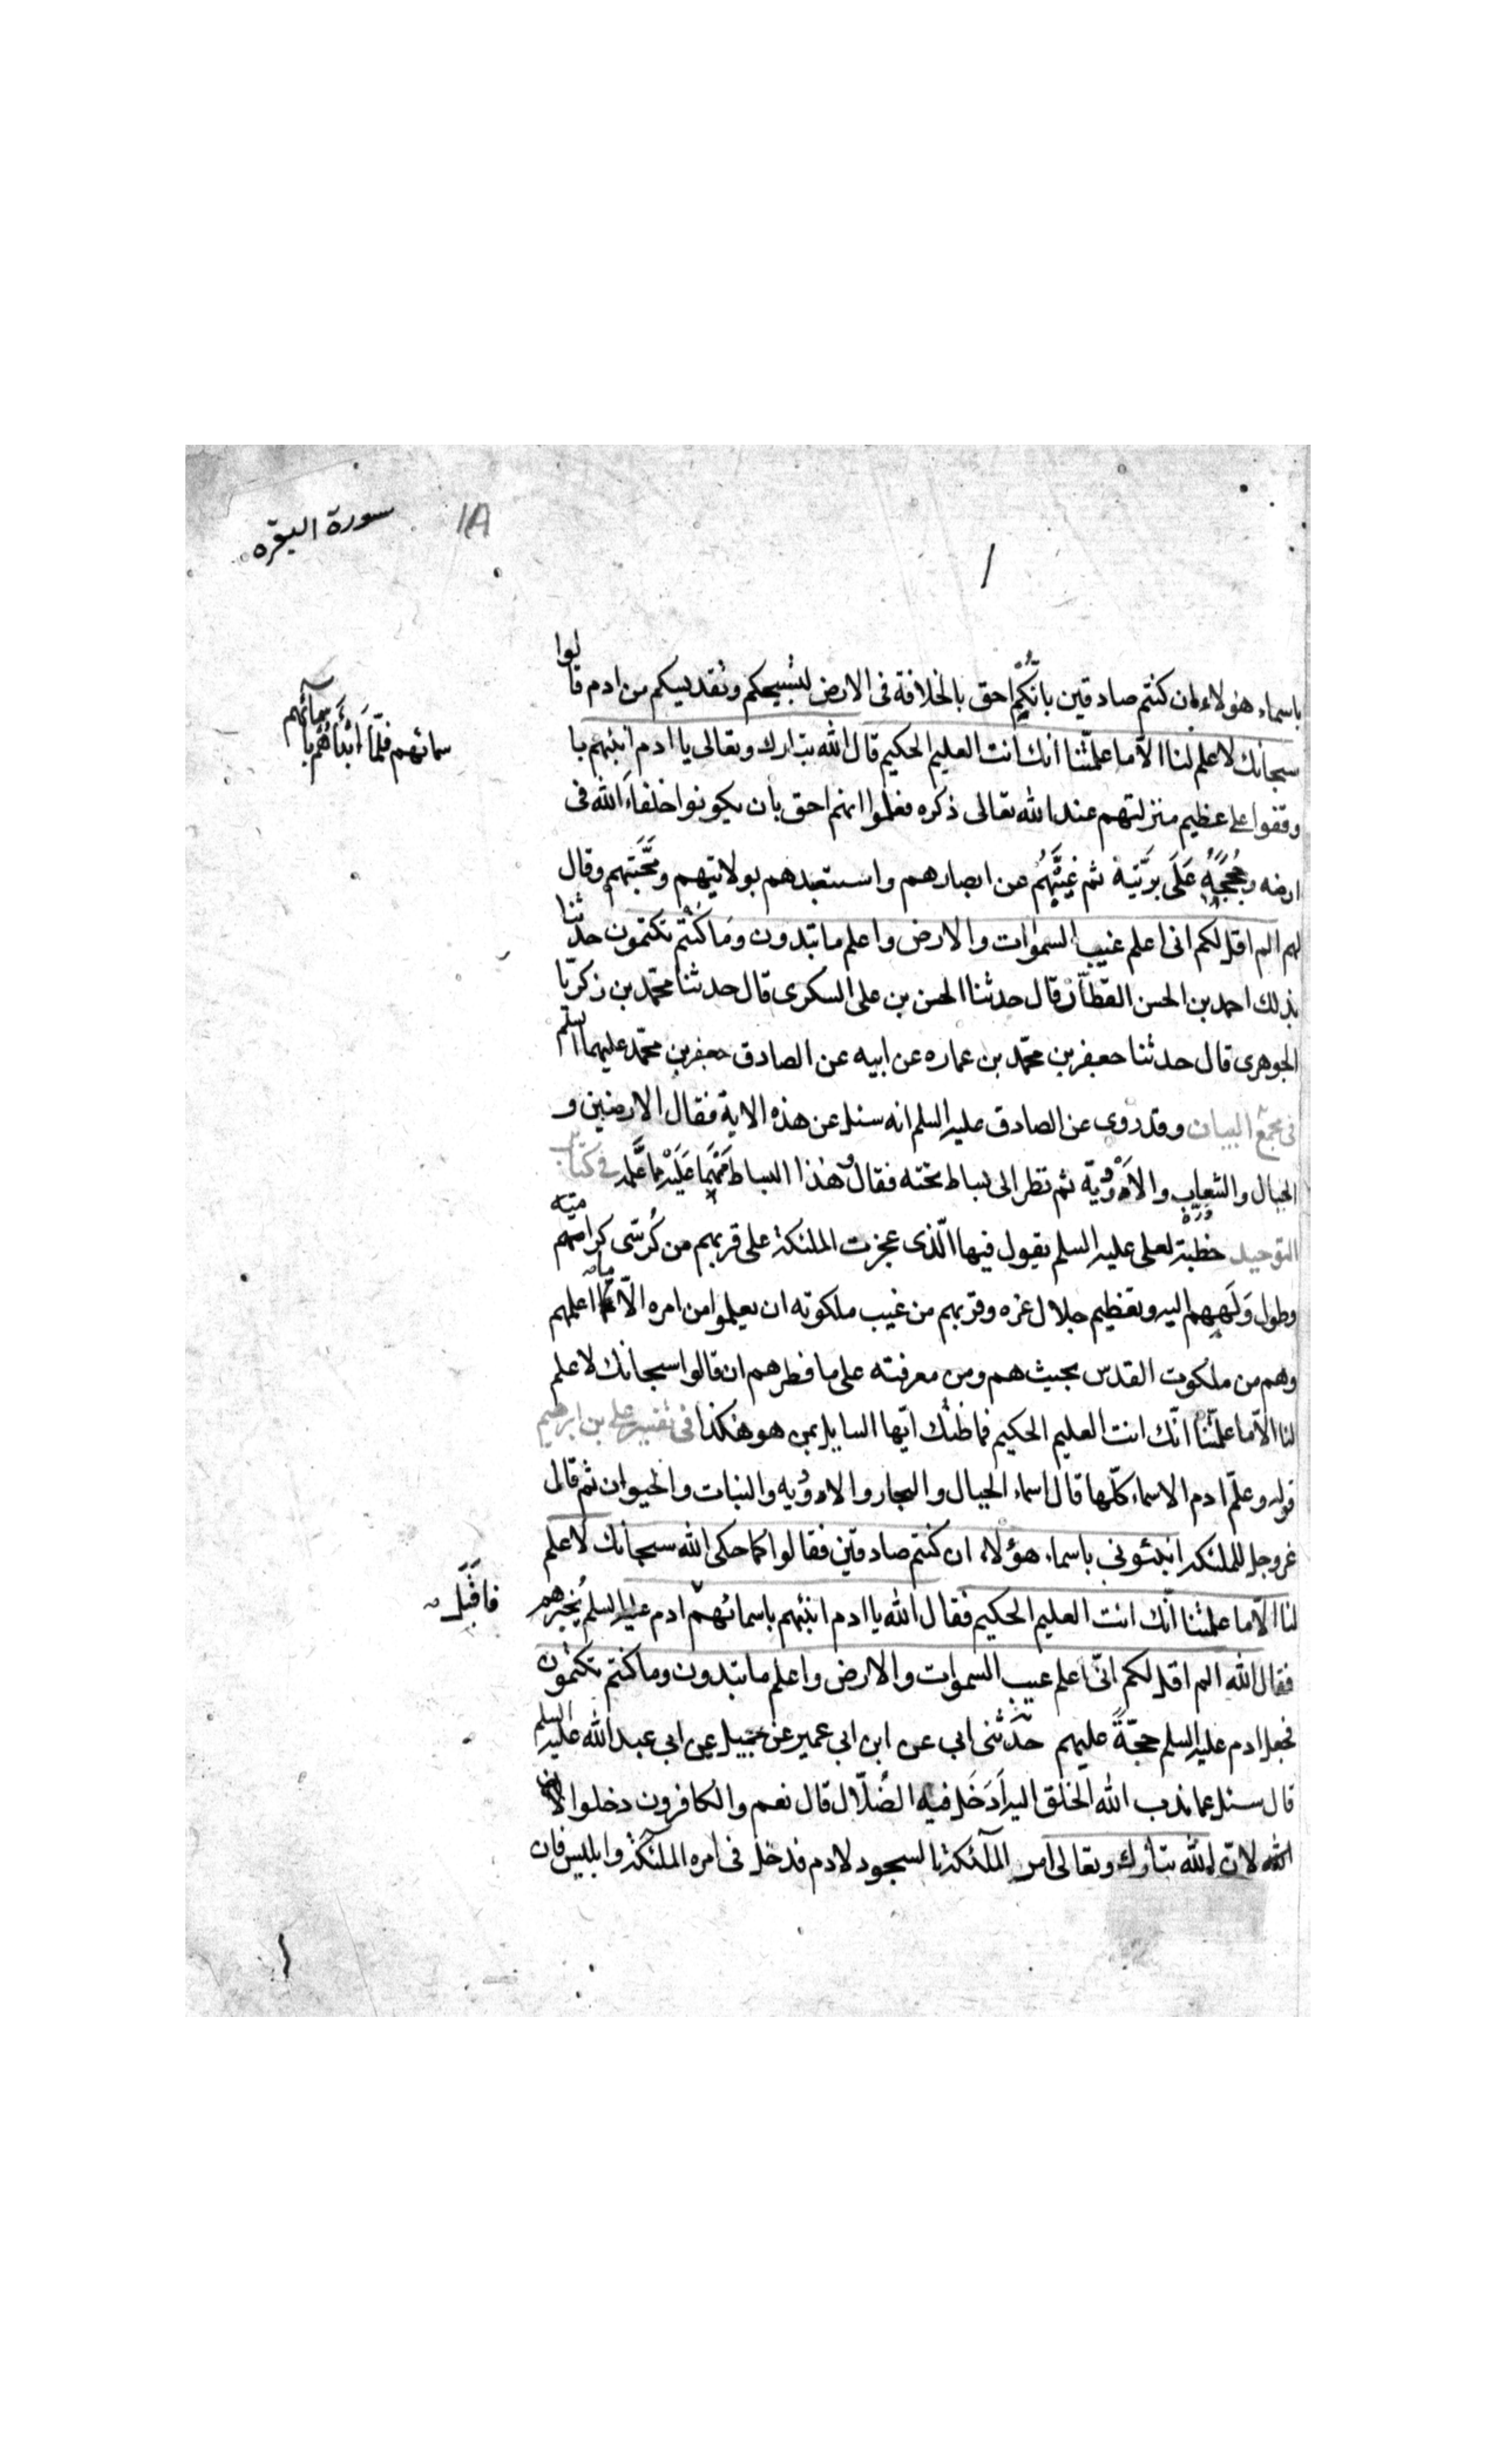 سورة البقره
1A
باسماء هؤلاء ان كنتم صادقين بانكم احق بالخلافة فى الارض لتسبيحكم وتقديسكم من ادم قالوا
سبحانك لا علم لنا الا ما علّمتنا انك انت العليم الحكيم قال الله تبارك وتعالى يا ادم انبئهم با
سمائهم فلمّا اَنْبَأَهُمْ باسمائهم
وقفوا على عظيم منزلتهم عند الله تعالى ذكره فعلموا انهم احق بان يكونوا خلفاء الله فى
ارضه وحُجَجُهُ عَلَى بَرِّيَّتِهِ ثم غَيَّبَهُمْ عن ابصارهم واستعبدهم بولايتهم ومَحَبَّتِهم وقال
لهم الم اقل لكم انى اعلم غيب السموات والارض واعلم ما تبدون وما كُنتم تكتمون حدثنا
بذلك احمد بن الحسن القطّان قال حدثنا الحسن بن على السكرى قال حدثنا محمّد بن زكريّا
الجوهرى قال حدثنا جعفر بن محمّد بن عماره عن ابيه عن الصادق جعفر بن محمّد عليهما السلم
فى مجمع البيان وقد روى عن الصادق عليه السلم انه سئل عن هذه الاية فقال الارضين و
الجبال والشعاب والاَوْدِيَة ثم نظر الى بساط تحته فقال وهذا البساط مِمَّا عَلَّمه فى كتاب
التوحيد خطبة لعلى عليه السلم يقول فيها الّذى عجزت الملئكة على قربهم من كُرسّى كرامته
وطول وَلَهِهِم اليه وتعظيم جلال عزه وقربهم من غيب ملكوته ان يعلموا من امره الّا ما اعلمهم
وهم من ملكوت القدس بحيث هم ومن معرفته على ما فطرهم ان قالوا سبحانك لا علم
لنا الّا ما علمّتنا انّك انت العليم الحكيم فما ظنّك ايّها السايل بمن هو هكذا فى تفسير على بن ابرهيم
قوله وعلّم ادم الاسماء كلّها قال اسماء الجبال والبحار والاودية والنبات والحيوان ثم قال
عز وجل للملئكه انبئونى باسماء هؤلاء ان كنتم صادقين فقالوا كما حكى الله سبحانك لا علم
لنا الّا ما علمتنا انّك انت العليم الحكيم فقال الله يا ادم انبئهم باسمائهم ادم عليه السلم يُخبرهم
فاَقْبَلَ
فقال الله الم اقل لكم انّى اعلم غيب السموات والارض واعلم ما تبدون وما كنتم تكتمون
فجعل ادم عليه السلم حجّةً عليهم حَدَّثنى ابى عن ابن ابى عمير عن جميل عن ابى عبد الله عليه السلم
قال سئل عما ندب الله الخلق اليه اَدَخَلَ فيه الضُّلّال قال نعم والكافرون دخلوا فيه
لانّ الله تبارك وتعالى امر الملٓئكة بالسجود لادم فدخل فى امره الملٓئكة وابليس فان